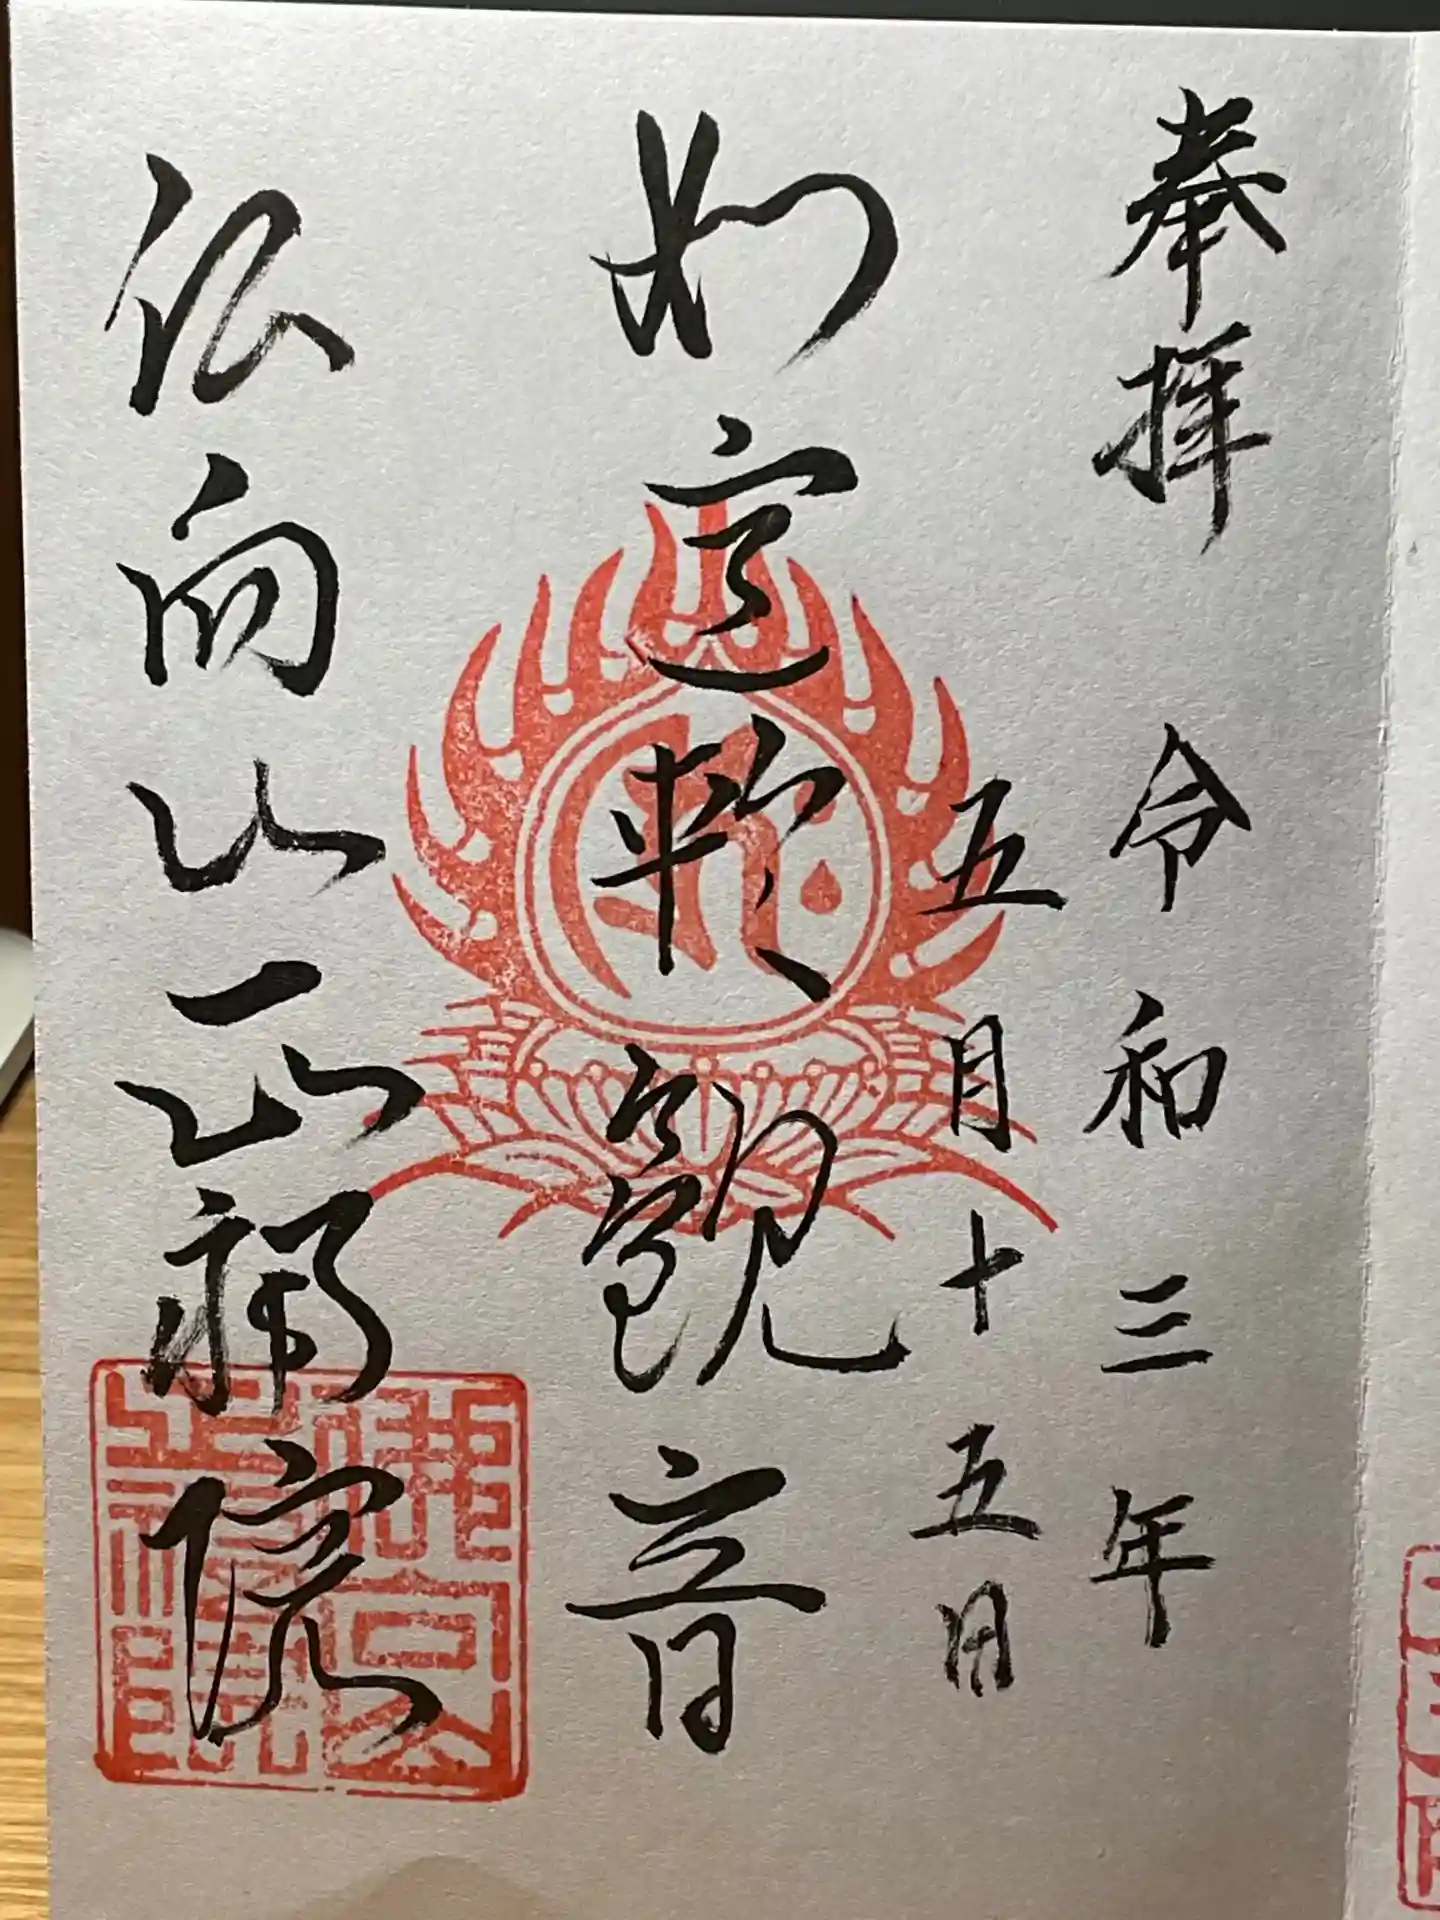 奉拝
令和三年
五月十五日
如意輪観音
仏向山正福院